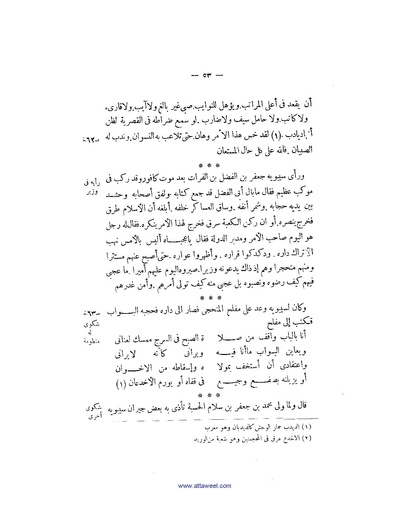 — ٥٣ —
أن يقعد فى أعلى المراتب ويؤهل للنوايب صبى غير بالغ ولا آيب ولا قارىء
ولا كاتب. ولا حامل سيف ولا ضارب. لو سمع ضراطه فى القصرية لظن
دبادب. (١) لقد خس هذا الأمر وهان حتى تلاعب به النسوان وندب له
الصبيان. فالله على كل حال المستعان
٦٢-
* * *
ورأى سيبويه جعفر بن الفضل بن الفرات بعد موت كافور وقد ركب فى
موكب عظيم فقال ما بال أبى الفضل قد جمع كتابه ولفق أصحابه وحشد
بين يديه حجابه وشمر أنفه. وساق العساكر خلفه أبلغه أن الاسلام طرق
فخرج ينصره. أو ان ركن الكعبة سرق فخرج لهذا الامر ينكره. فقال له رجل
هو اليوم صاحب الأمر ومدبر الدولة فقال ياعجباه أليس بالامس نهب
الأتراك داره. ودكدكوا قراره. وأظهروا عواره. حتى أصبح عنهم مستترا
ومنهم متحجرا وهم إذ ذاك يدعونه وزيرا. صيروه اليوم عليهم أميرا. ما عجبى
فيهم كيف رضوه ونصبوه بل عجبى منه كيف تولى أمرهم. وأمن غدرهم
رأيه فى
وزير
* * *
وكان لسيبويه وعد على مفلح المنجحى فصار الى داره فحجبه البواب
فكتب إلى مفلح
٦٣-
شكوى
له
منظومة
أنا بالباب واقف من صلا ة الصبح فى السرج ممسك لعنانى
وبعاين البواب ما أنا فيه ويرانى كأنه لايرانى
واعتقادى أن أستخف بمولا ه وإسقاطه من الاخوان
أو يزيلنه بصفع وجيع فى قفاه أو يورم الأخدعان (١)
* * *
قال ولما ولى محمد بن جعفر بن سلام الحسبة تأذى به بعض جيران سيبويه
شكوى
أخرى
(١) الديدب حمار الوحش كالديدبان وهو معرب
(٢) الأخدع عرق فى المحجمتين وهو شعبة من الوريد
www.attaweel.com